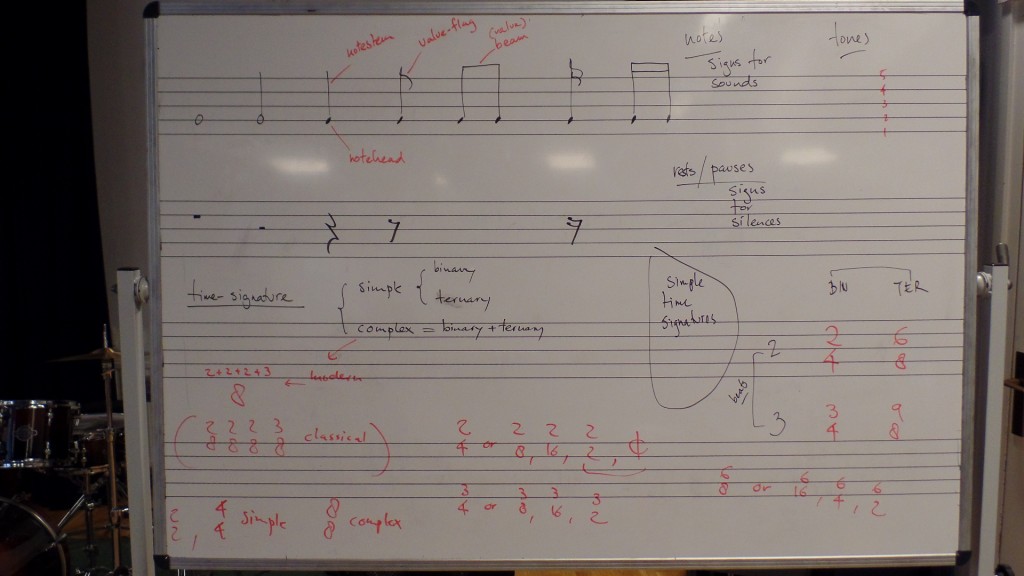 notestem
value-flag
(value)
beam
notehead
notes
signs for
sounds
tones
5
4
3
2
1
rests/pauses
signs
for
silences
time-signature
simple { binary
ternary
complex = binary + ternary
modern
2+2+2+3
8
( 2 2 2 3
8 8 8 8 classical )
2 4 8
2, 4 simple 8 complex
2 2 2 2
4 or 8, 16, 2, ¢
3 3 3 3
4 or 8, 16, 2
simple
time
signatures
BIN TER
beats
2
2 6
4 8
3
3 9
4 8
6 6 6 6
8 or 16, 4, 2